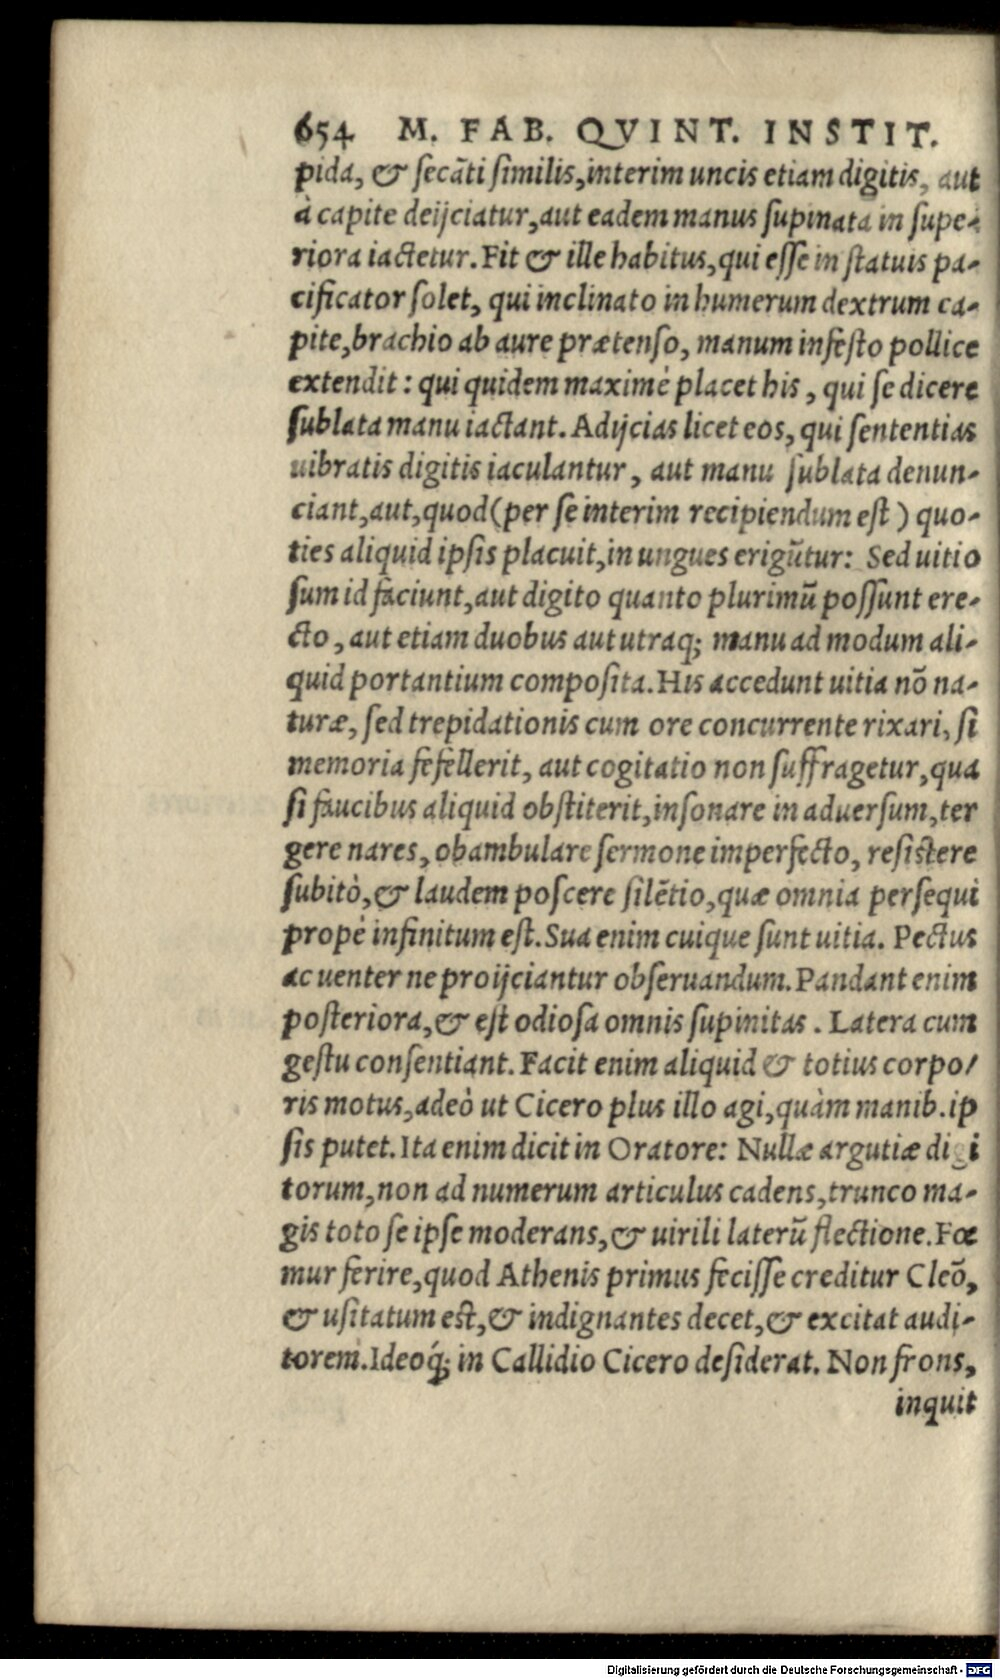 654 M. FAB. QVINT. INSTIT.
pida, & ſecāti ſimilis, interim uncis etiam digitis, aut
à capite deijciatur, aut eadem manus ſupinata in ſupe-
riora iactetur. Fit & ille habitus, qui eſſe in ſtatuis pa-
cificator ſolet, qui inclinato in humerum dextrum ca-
pite, brachio ab aure prætenſo, manum infeſto pollice
extendit: qui quidem maximè placet his, qui ſe dicere
ſublata manu iactant. Adijcias licet eos, qui ſententias
uibratis digitis iaculantur, aut manu ſublata denun-
ciant, aut, quod (per ſe interim recipiendum eſt) quo-
ties aliquid ipſis placuit, in ungues erigūtur: Sed uitio
ſum id faciunt, aut digito quanto plurimū poſſunt ere-
cto, aut etiam duobus aut utraq; manu ad modum ali-
quid portantium compoſita. His accedunt uitia nō na-
turæ, ſed trepidationis cum ore concurrente rixari, ſi
memoria fefellerit, aut cogitatio non ſuffragetur, qua
ſi faucibus aliquid obſtiterit, inſonare in aduerſum, ter
gere nares, obambulare ſermone imperfecto, reſiſtere
ſubitò, & laudem poſcere ſilētio, quæ omnia perſequi
propè infinitum eſt. Sua enim cuique ſunt uitia. Pectus
ac uenter ne proijciantur obſeruandum. Pandant enim
poſteriora, & eſt odioſa omnis ſupinitas. Latera cum
geſtu conſentiant. Facit enim aliquid & totius corpo/
ris motus, adeò ut Cicero plus illo agi, quàm manib. ip
ſis putet. Ita enim dicit in Oratore: Nullæ argutiæ digi
torum, non ad numerum articulus cadens, trunco ma-
gis toto ſe ipſe moderans, & uirili laterū flectione. Fœ
mur ferire, quod Athenis primus feciſſe creditur Cleō,
& uſitatum eſt, & indignantes decet, & excitat audi-
torem. Ideoq́; in Callidio Cicero deſiderat. Non frons,
inquit
Digitalisierung gefördert durch die Deutsche Forschungsgemeinschaft - DFG